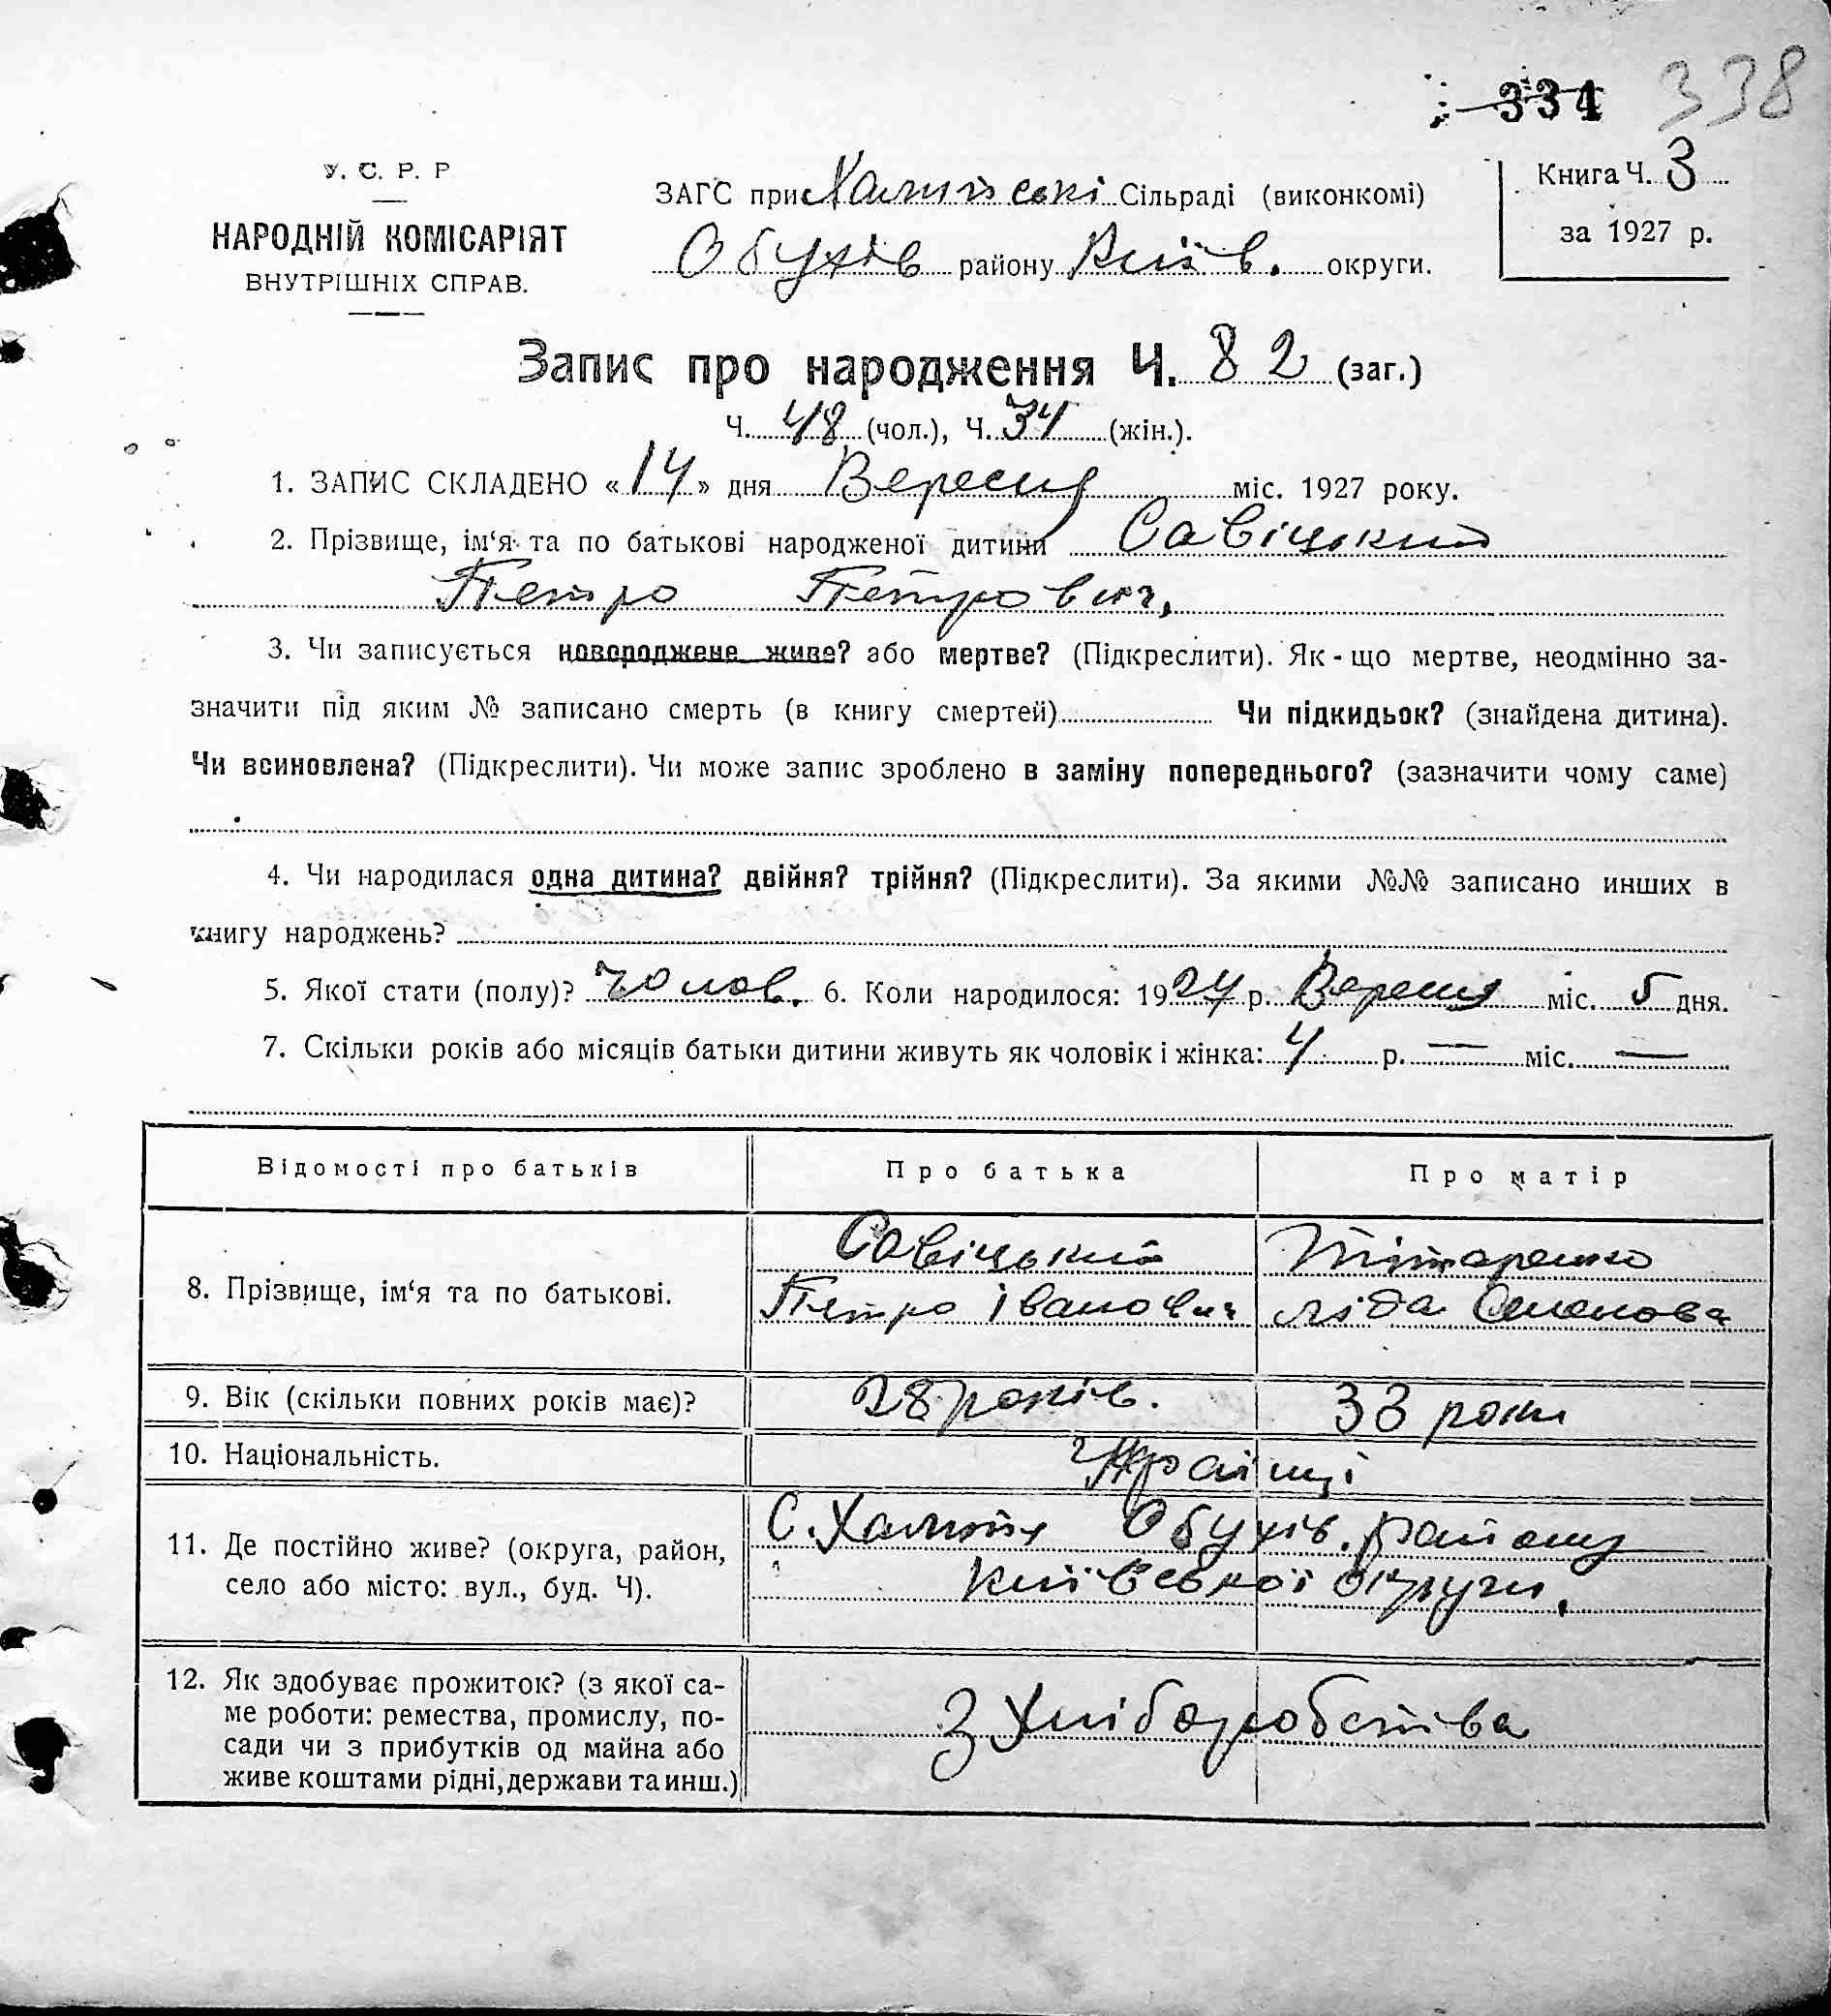 334 338
У. С. Р. Р
НАРОДНІЙ КОМІСАРІЯТ
ВНУТРІШНІХ СПРАВ.
ЗАГС при Халипські Сільраді (виконкомі)
Обухів району Київ. округи.
Книга Ч. 3
за 1927 р.
Запис про народження Ч. 82 (заг.)
Ч. 48 (чол.), Ч. 34 (жін.).
1. ЗАПИС СКЛАДЕНО «14» дня Вересня міс. 1927 року.
2. Прізвище, ім‘я та по батькові народженої дитини Савіцький
Петро Петрович,
3. Чи записується новороджене живе? або мертве? (Підкреслити). Як-що мертве, неодмінно за-
значити під яким № записано смерть (в книгу смертей) Чи підкидьок? (знайдена дитина).
Чи всиновлена? (Підкреслити). Чи може запис зроблено в заміну попереднього? (зазначити чому саме)
4. Чи народилася одна дитина? двійня? трійня? (Підкреслити). За якими №№ записано инших в
книгу народжень?
5. Якої стати (полу)? Чолов. 6. Коли народилося: 1927 р. Вересня міс. 5 дня.
7. Скільки років або місяців батьки дитини живуть як чоловік і жінка: 4 р. — міс. —
Відомості про батьків Про батька Про матір
8. Прізвище, ім‘я та по батькові.
Савіцький Тітаренко
Петро Іванович Ліда Семенова
9. Вік (скільки повних років має)? 28 років. 33 роки
10. Національність. Українці
11. Де постійно живе? (округа, район,
село або місто: вул., буд. Ч).
С. Халипʼя Обухів. району
Київської округи.
12. Як здобуває прожиток? (з якої са-
ме роботи: ремества, промислу, по-
сади чи з прибутків од майна або
живе коштами рідні, держави та инш.)
З Хліборобства